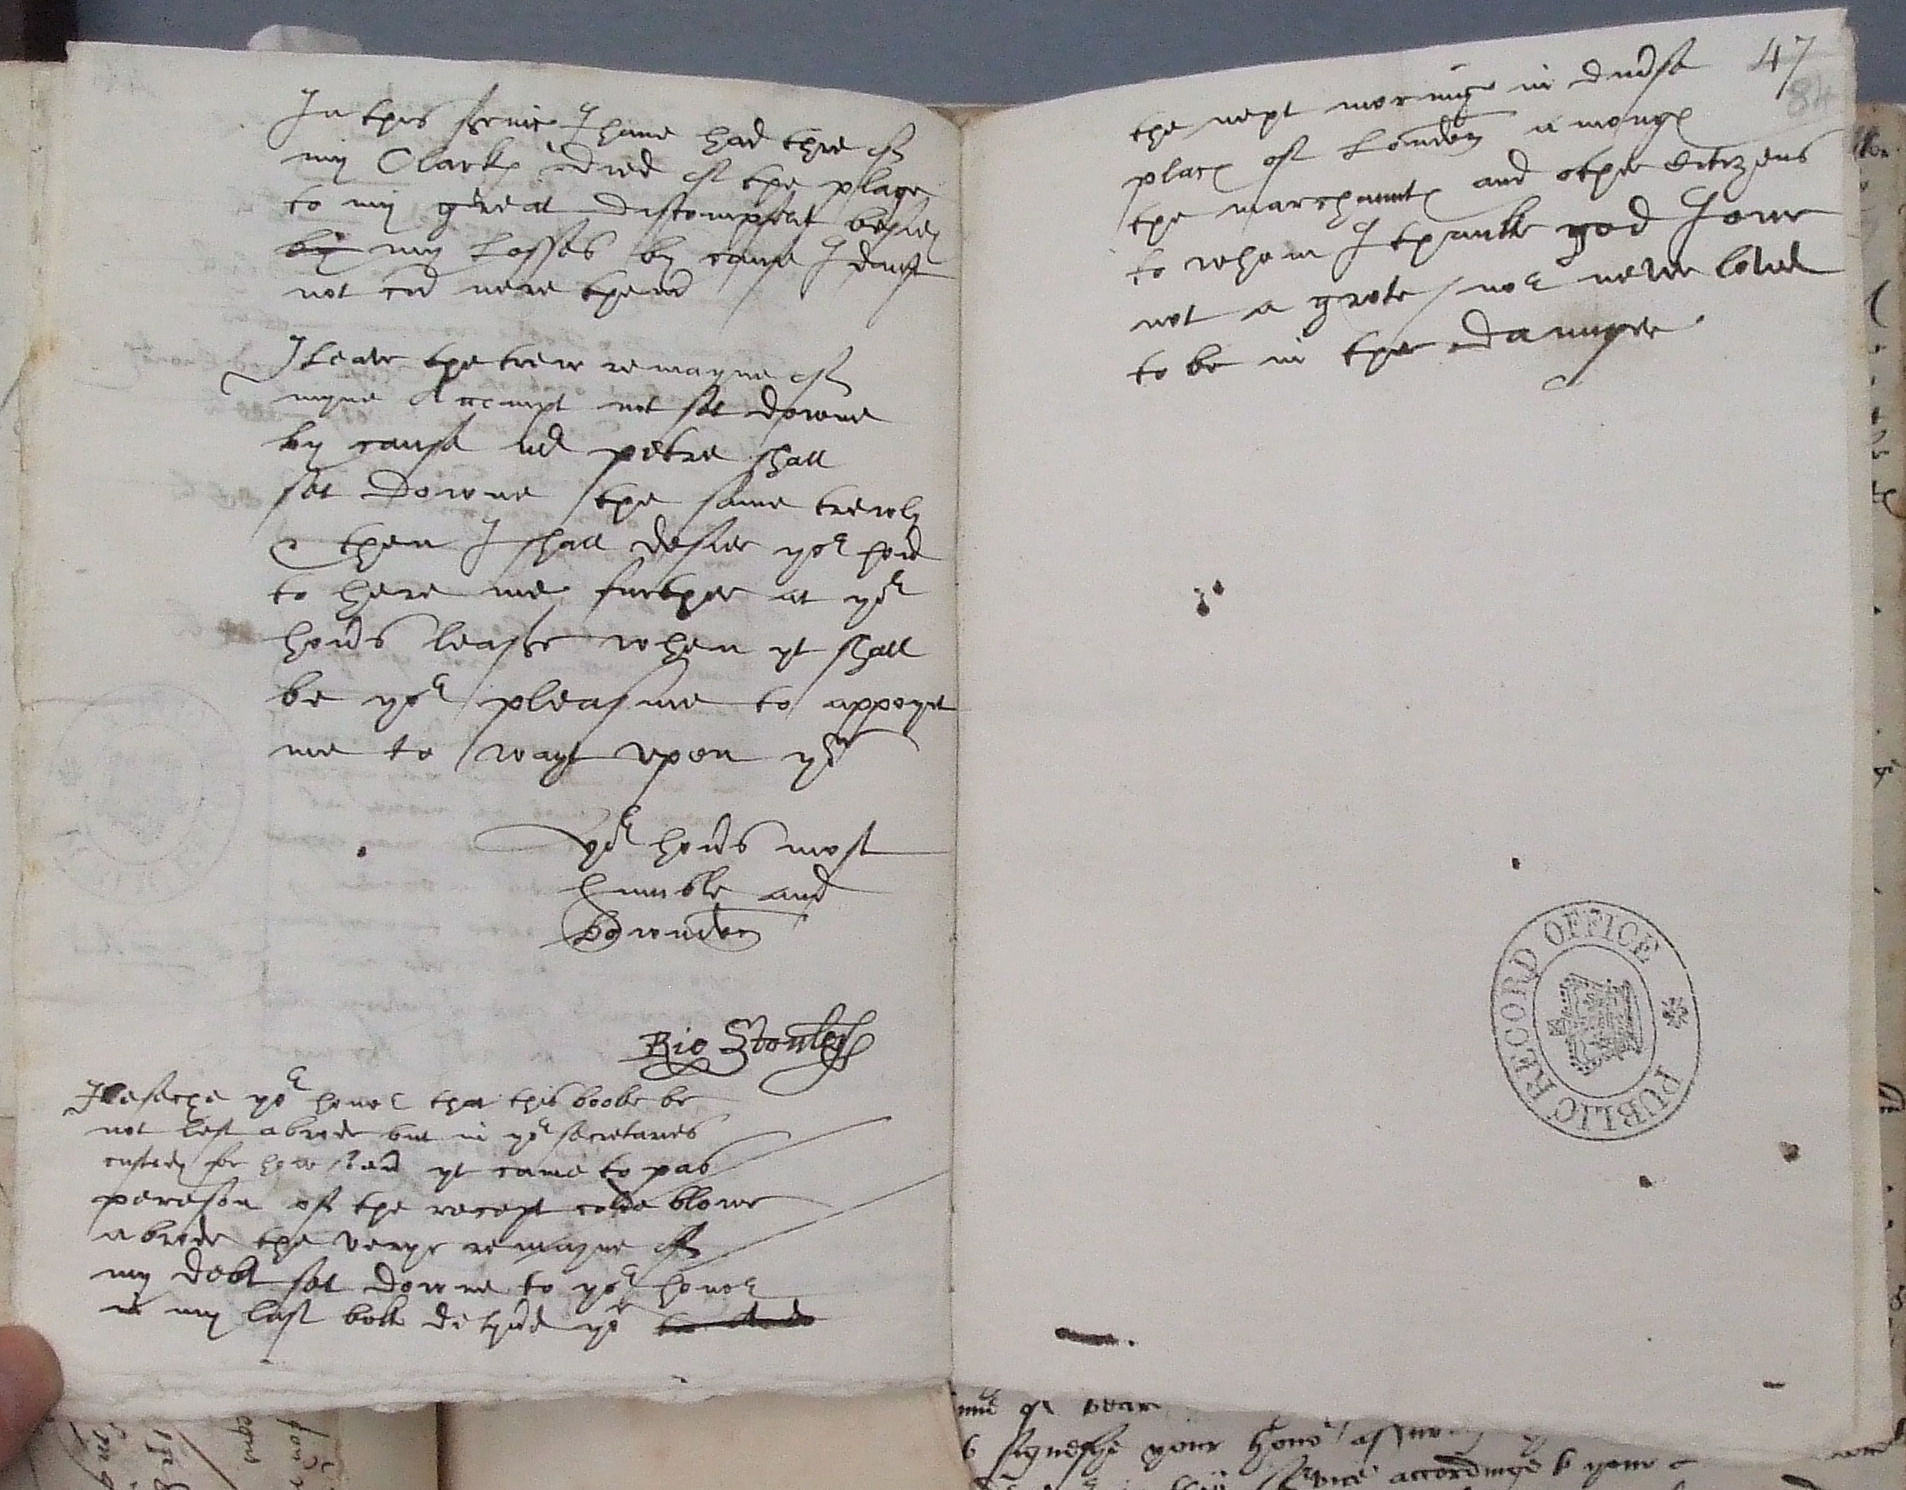 In this servic I have had thre of
my Clarks died of the plage
to my great discomfert besids
by my Losses by cause I daust
not com nere them
I Leave the trew remayne of
myne Accompt not set downe
by cause mr petre shall
set downe the same trewly
& then I shall desier yor honor
to here me further at yor
honors leasur when yt shall
be yor pleasure to appoynt
me to wayt upon you
yor honors most
humble and
bownden
Ric Stonley
I beseche yor honor that this booke be
not left abrode but in yor secretaries
custody for how soever yt came to pas
of the receyt colde blowe
abrode the verye remayne of
my debt set downe to yor honor
in my last boke delyvered you
47
84
the next morninge in
place of London amongs
the marchaunts and other Citizens
to whom I thanke god I owe
not a grote / nor never loved
to be in ther daunger
PUBLIC RECORD OFFICE
your honor
accordinge to your